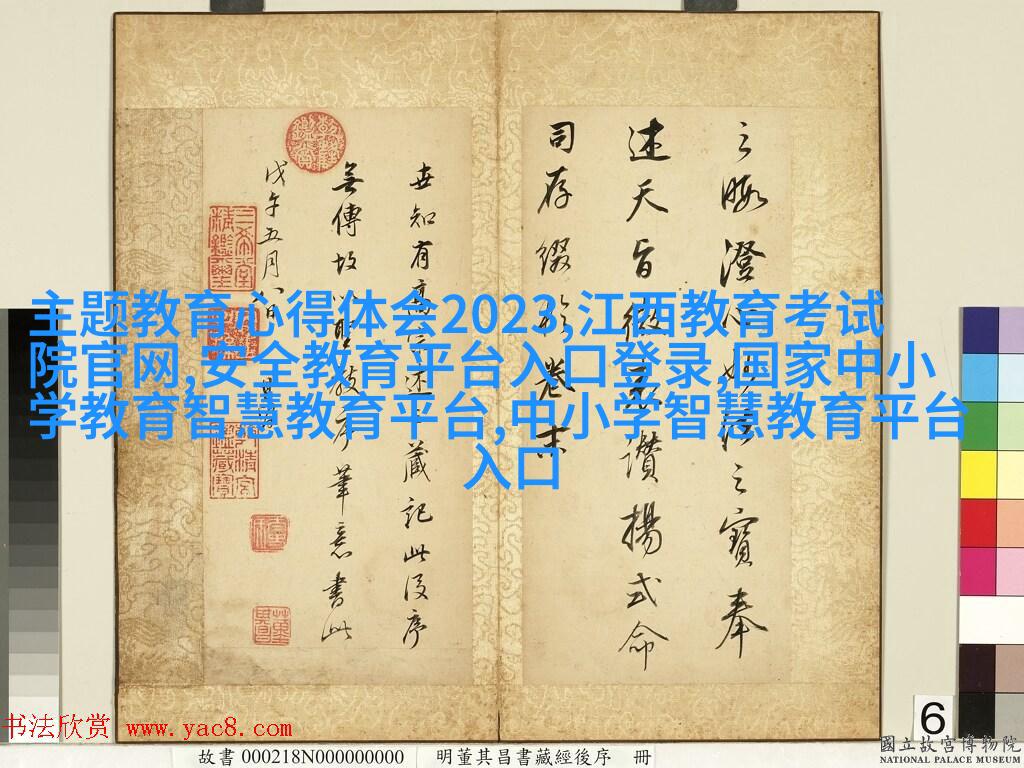 之暇澄心妙之寶奉
述天旨微讚揚式命
司存綴於卷末
世知有高述藏記此後序
無傳故以聖教序筆意書此
戊午五月八日
三希堂精鑑璽
主题教育心得体会2023,江西教育考试
院官网,安全教育平台入口登录,国家中小
学教育智慧教育平台,中小学智慧教育平台
入口
6
书法欣赏 www.yac8.com
故書 000218N000000000 明董其昌書藏經後序 冊
國立故宮博物院
NATIONAL PALACE MUSEUM